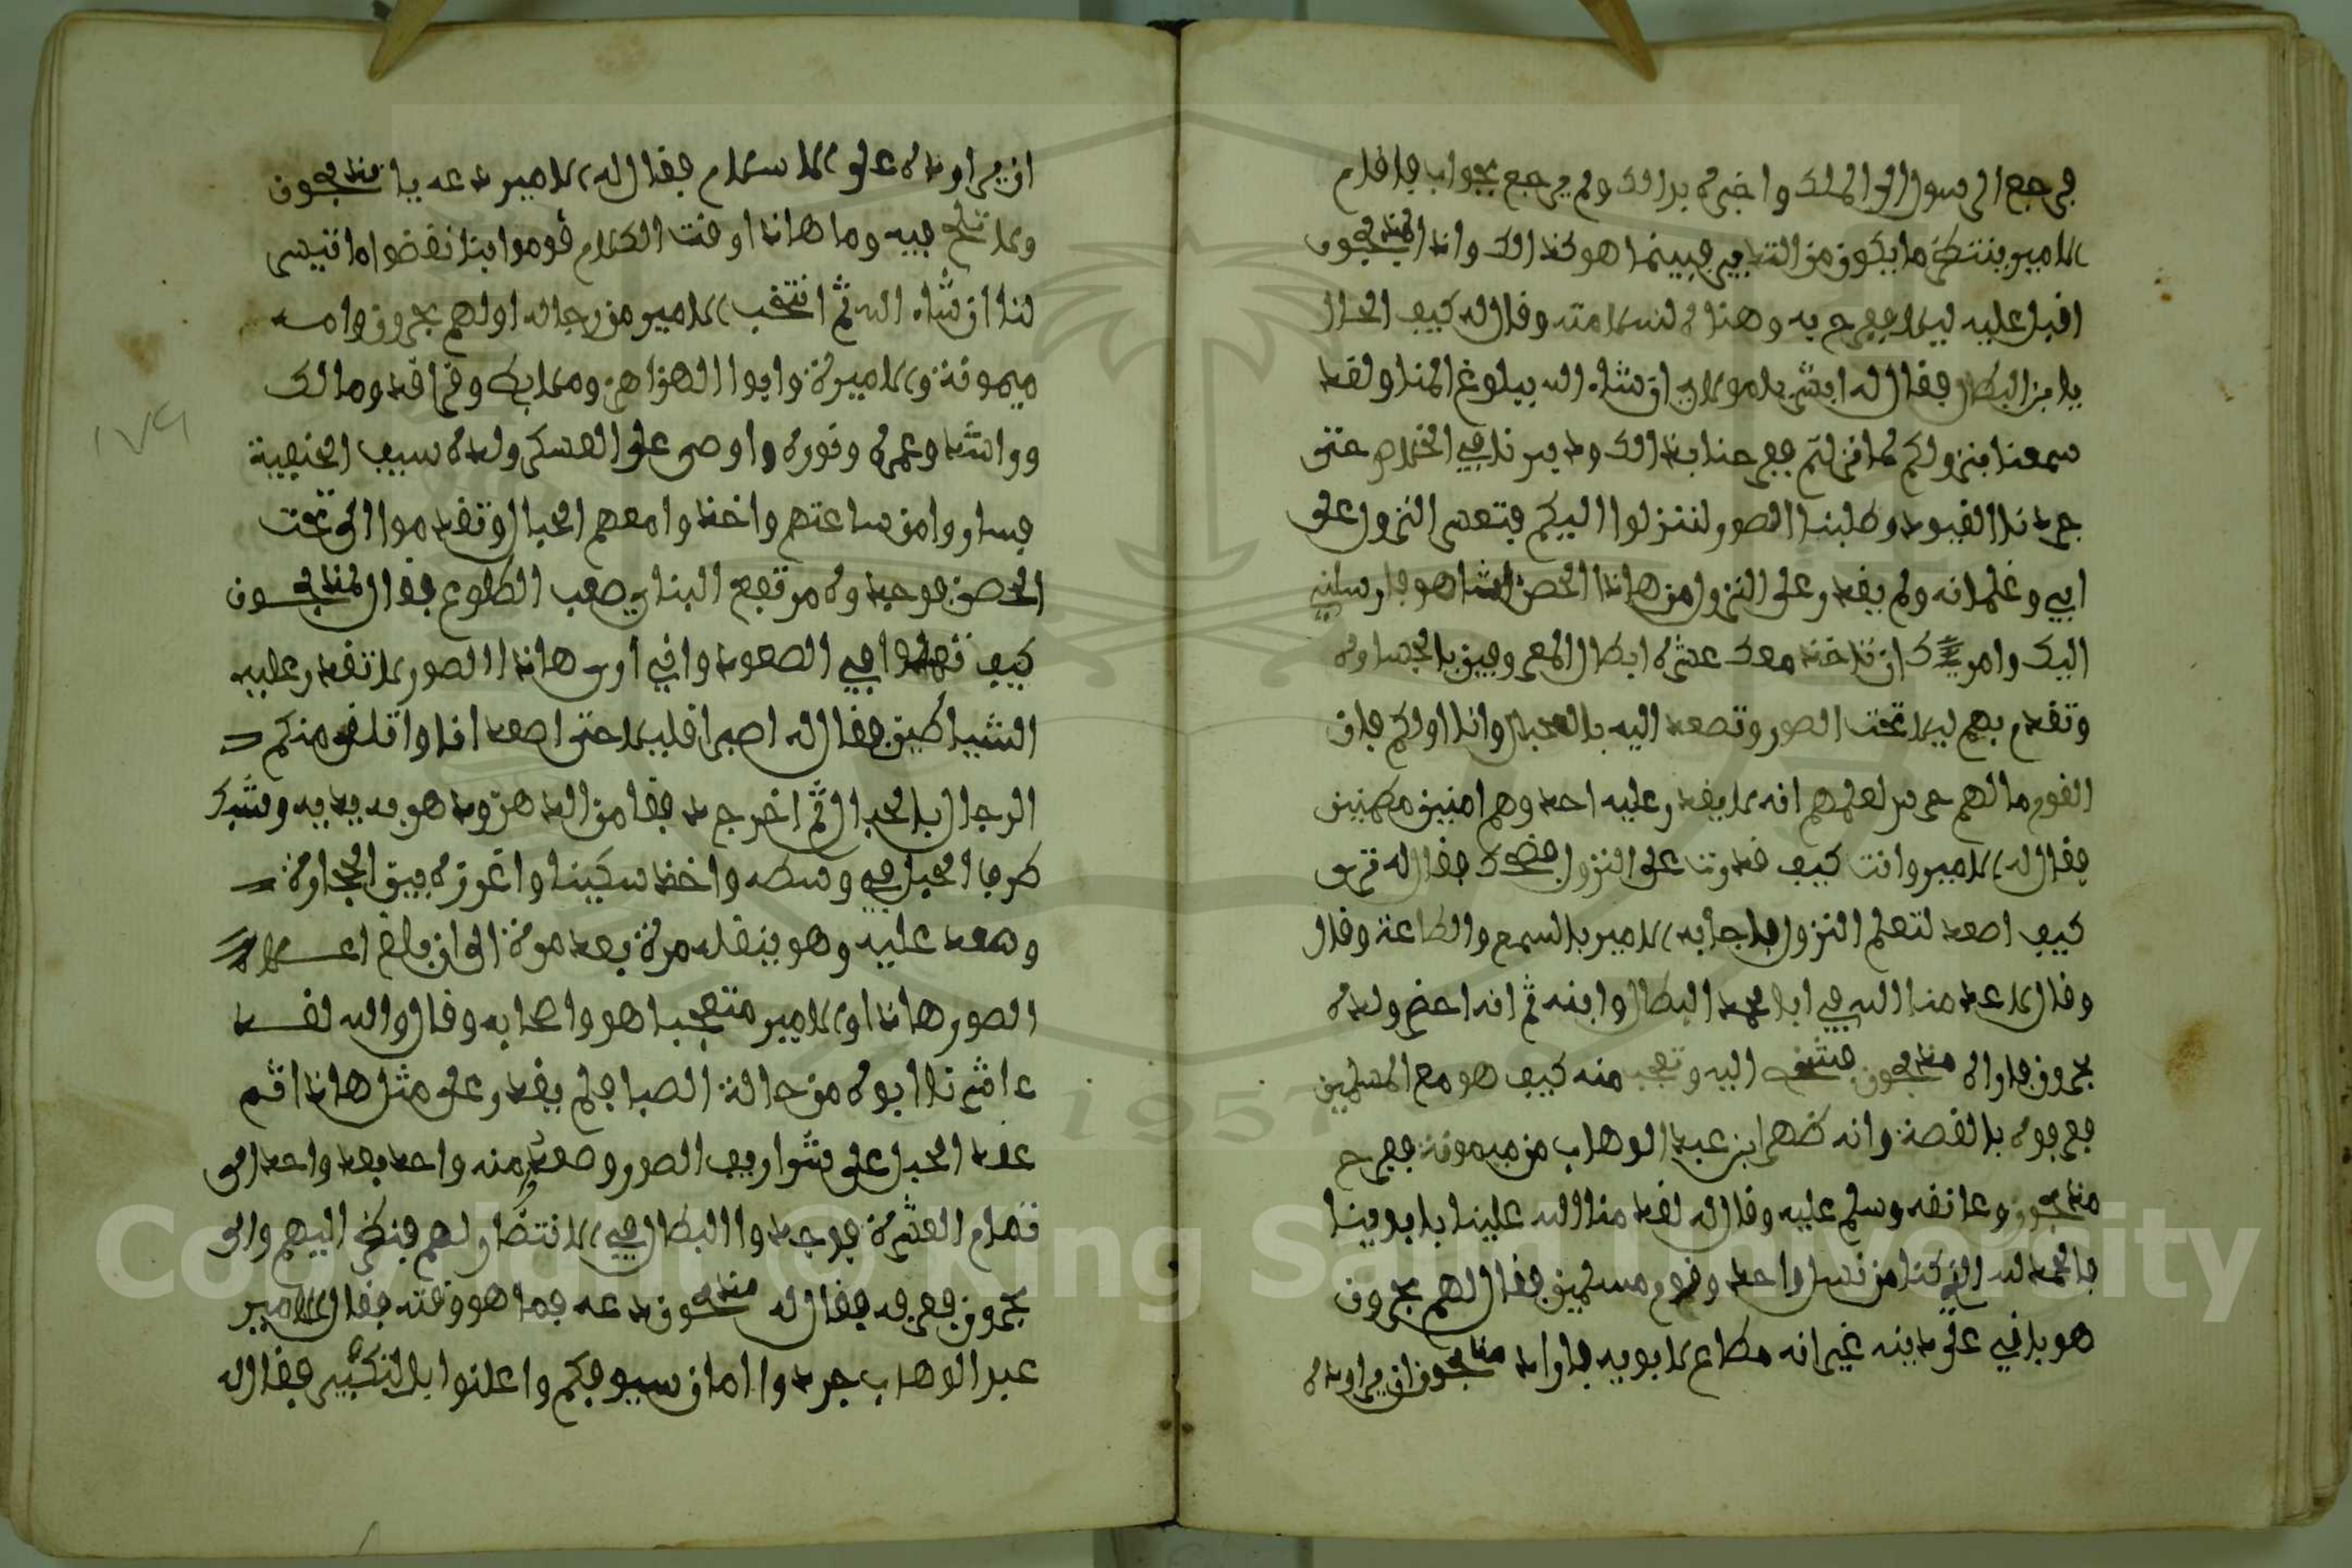 فرجع الرسول الى الملك واخبره بذالك ولم يرجع بجواب فاقام
الامير ينتظر ما يكون من التدبير فبينما هو كذالك واذا المندجون
اقبل عليه ليلا ففرح به وهناه لسلامته وقال له كيف الحال
يا بن البطال فقال له ابشر يا مولاي ان شاء الله ببلوغ المنا ولقد
سمعنا بنزولكم لما نزلتم ففرحنا بذالك ودبرنا في الخلاص حتى
جردنا القيود وطلبنا الصور لننزلوا اليكم فتعسر النزول على
ابي وغلمانه ولم يقدر على النزول من هاذا الحصن الشاهق فارسلني
اليك وامرك ان تاخذ معك عشرة ابطال المعروفين بالجسارة
وتقدم بهم ليلا تحت الصور وتصعد اليه بالحبال وانا اولكم فان
القوم ما لهم حرس لعلمهم انه لا يقدر عليه احد وهم امنين مطمنين
فقال له الامير وانت كيف قدرت على النزول فضحك فقال له ترى
كيف اصعد لتعلم النزول فاجابه الامير بالسمع والطاعة وقال
وقال لا عدمنا الله في ابا محمد البطال وابنه ثم انه احضر ولده
بحرون فلراه مندجون فشخص اليه وتعجب منه كيف هو مع المسلمين
فعرفوه بالقصة وانه ظهر ابن عبد الوهاب من ميمونة ففرح
مندجون وعانقه وسلم عليه وقال له لقد منا الله علينا يا بن عمنا
فالحمد لله الذي كنا من نسل واحد وقوم مسلمين فقال لهم بحرون
هو باقي على دينه غير انه مطاع لابويه فاراد مندجون ان يراوده
ان يراوده على الاسلام فقال له الامير دعه يا مندجون
ولا تلح فيه وما هاذا وقت الكلام قوموا بنا نقضوا ما تيسر
لنا ان شاء الله ثم انتخب الامير من رجاله اولهم بحرون وامه
ميمونة والاميرة وابوا الهزاهز وملابك وقراقد ومالك
وراشد وعمر وقورة واوصى على العسكر ولده سيف الحنيفية
فساروا من ساعتهم واخذوا معهم الحبال وتقدموا الى تحت
الحصن فوجدوه مرتفع البناي صعب الطلوع فقال المندجون
كيف تعملوا في الصعود واني ارى هاذا الصور لا تقدر عليه
الشياطين فقال له اصبر قليلا حتى اصعد انا واتلقى منكم
الرجال بالحبال ثم اخرج دقفا من الحد هزوه هو بيديه وشبك
طرف الحبل في وسطه واخذ سكينا واغرزه بين الحجارة
وصعد عليه وهو ينقله مرة بعد مرة الى ان بلغ اعلاه
الصور هاذا والامير متعجبا هو واصحابه وقالوا والله لقد
عاشرنا ابوه من حالة الصبا فلم يقدر على مثل هاذا ثم
عقد الحبل على شراريف الصور وصعدو منه واحد بعد واحد الى
تمام العشرة فوجدوا البطال في الانتظار لهم فنظر اليهم والى
بحرون فعرفه فقال له مندجون دعه فما هو وقته فقال الامير
عبد الوهاب جردوا امان سيوفكم واعلنوا بالتكبير فقال له
١٧٩
Copyright © King Saud University
1957